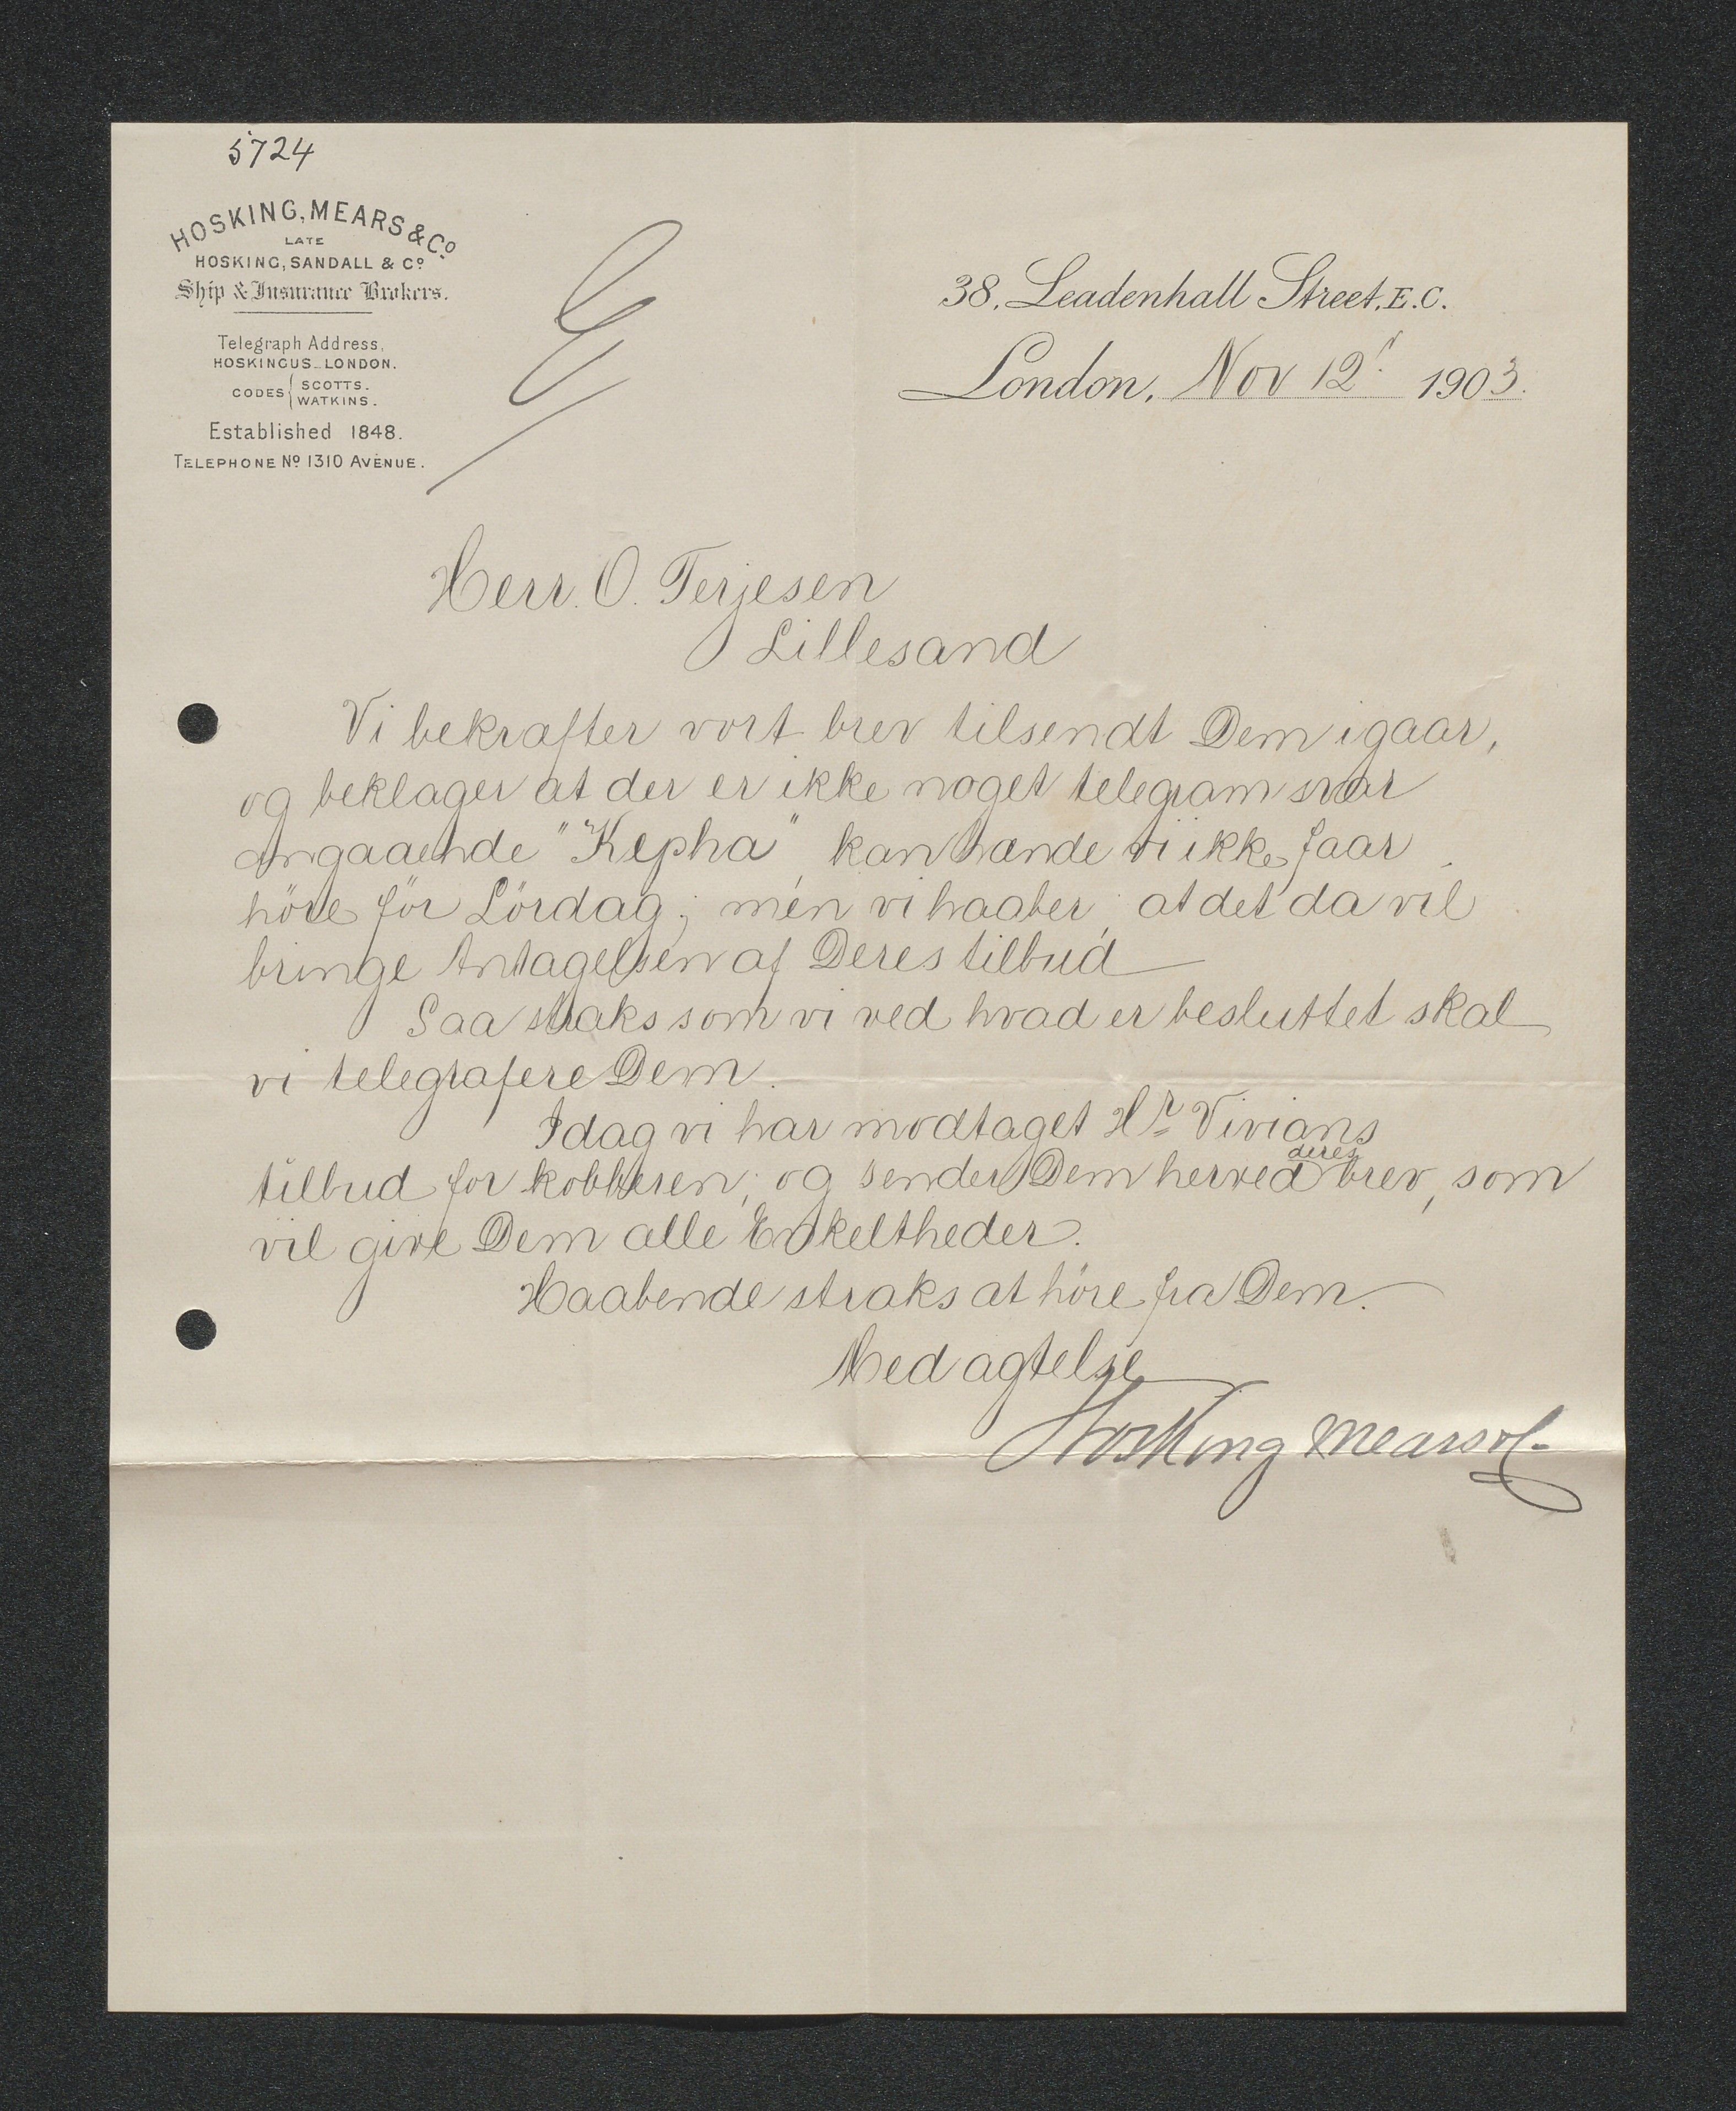 5724
HOSKING, MEARS & Co.
LATE
HOSKING, SANDALL & Co.
Ship & Insurance Brokers.
Telegraph Address,
HOSKINGUS_LONDON.
CODES { SCOTTS.
WATKINS.
Established 1848.
TELEPHONE No. 1310 AVENUE.
38, Leadenhall Street, E.C.
London, Nov 12th 1903.
Herr. O. Terjesen
Lillesand
Vi bekrafter vort brev tilsendt Dem igaar,
og beklager at der er ikke noget telegram svar
angaaende "Kepha", kan hænde vi ikke faar
höre för Lördag; men vi haaber, at det da vil
bringe Antagelsen af Deres tilbud
Saa straks som vi ved hvad er besluttet skal
vi telegrafere Dem.
Idag vi har modtaget Hr Vivians
tilbud for kobberen; og sender Dem herved deres brev, som
vil give Dem alle Enkeltheder.
Haabende straks at höre fra Dem.
Med agtelse
Hosking Mears & Co